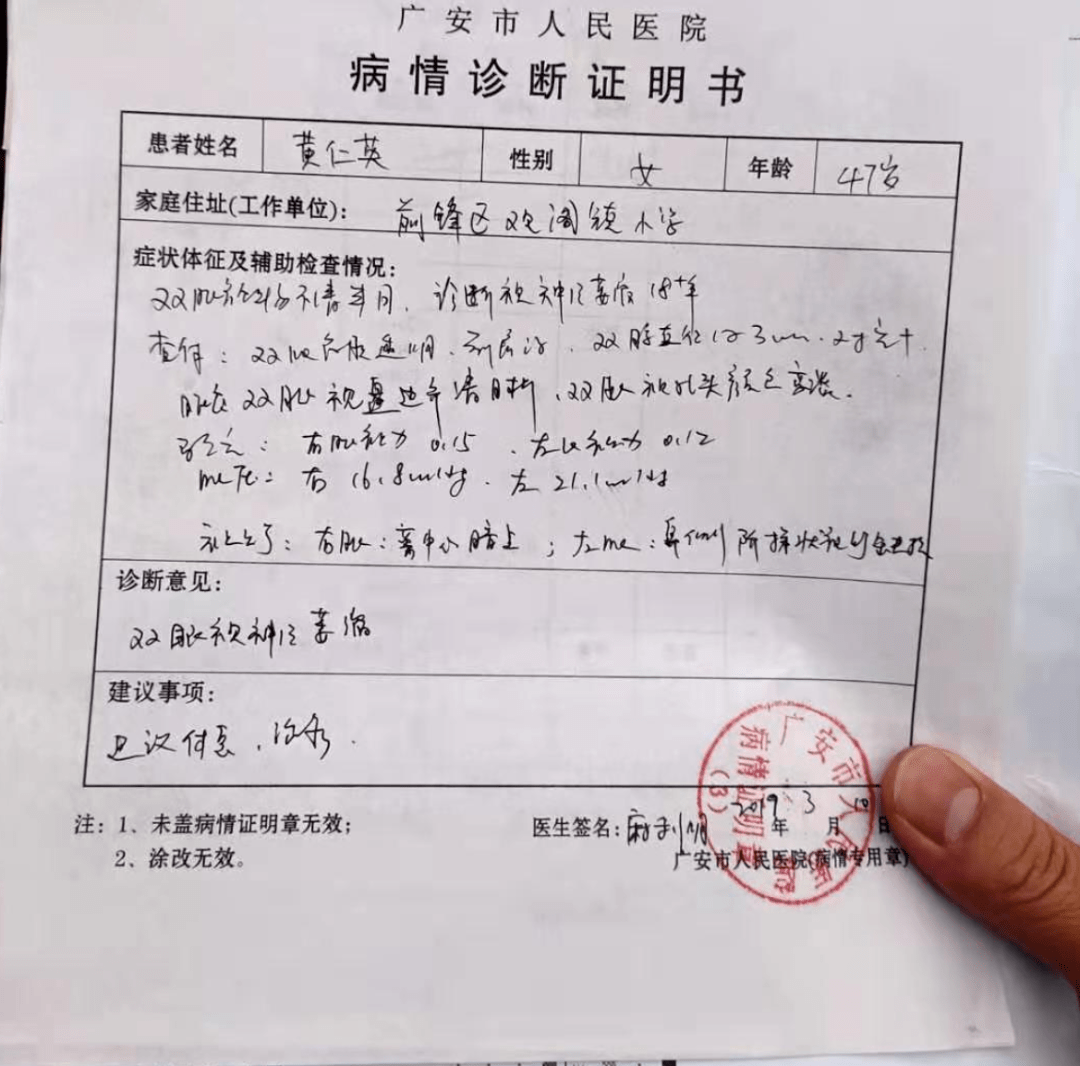 广安市人民医院
病情诊断证明书
患者姓名 黄仁英 性别 女 年龄 47岁
家庭住址(工作单位): 前锋区观阁镇小学
症状体征及辅助检查情况:
双眼视物不清半月. 诊断视神经萎缩 18⁺年
查体: 双眼 透明. 双瞳直径约3mm.
双眼视盘边界清晰, 双眼视乳头颜色变淡.
右眼视力 0.15 . 左眼视力 0.12
眼压: 右 16.8mmHg . 左 21.1mmHg
视野: 右眼: 离中心暗点 ; 左眼: 鼻侧阶梯状视野缺损
诊断意见:
双眼视神经萎缩
建议事项:
建议休息, 治疗.
注: 1、未盖病情证明章无效;
2、涂改无效。
医生签名:
2019年3月10日
广安市人民医院(病情专用章)
广安市人民医院
病情证明章
(3)